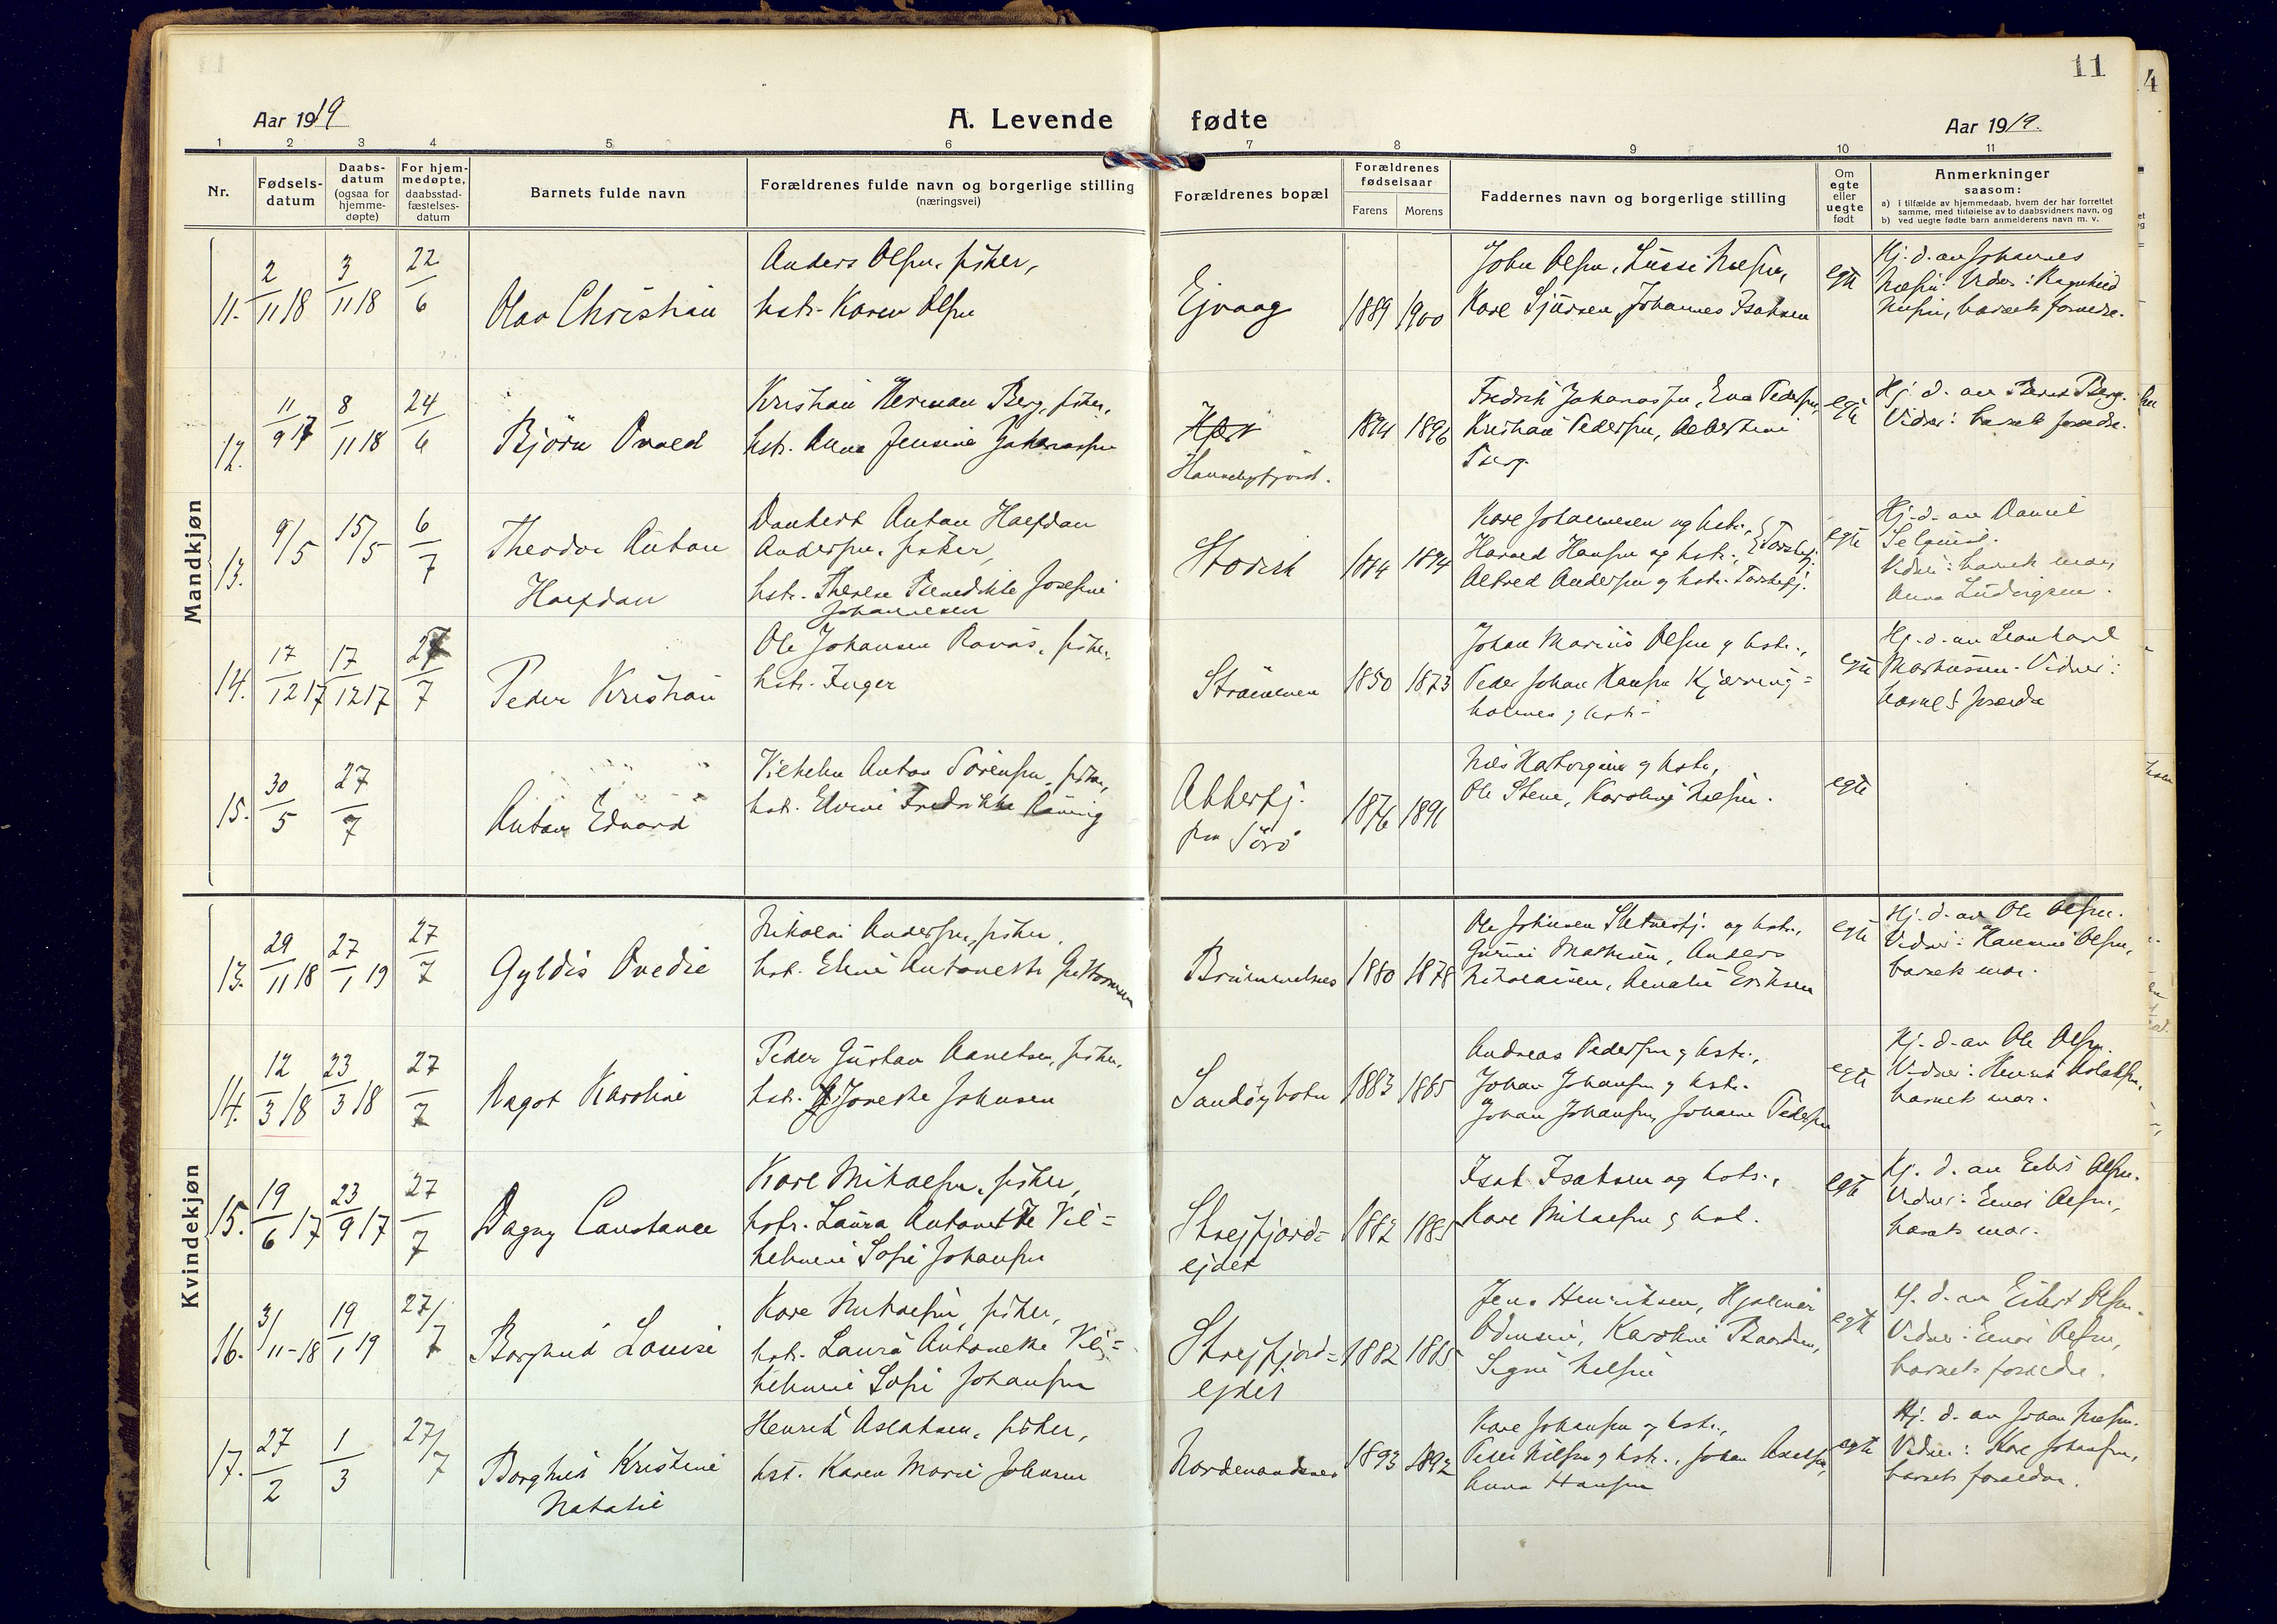 11
4
Aar 1919
A. Levende fødte
Aar 1919.
1 2 3 4 5 6 7 8 9 10 11
Nr.
Fødsels-
datum
Daabs-
datum
(ogsaa for
hjemme-
døpte)
For hjem-
medøpte,
daabsstad-
fæstelses-
datum
Barnets fulde navn
Forældrenes fulde navn og borgerlige stilling
(næringsvei)
Forældrenes bopæl
Forældrenes
fødselsaar
Farens Morens
Faddernes navn og borgerlige stilling
Om
egte
eller
uegte
født
Anmerkninger
saasom:
a) i tilfælde av hjemmedaab, hvem der har forrettet
samme, med tilføielse av to daabsvidners navn, og
b) ved uegte fødte barn anmelderens navn m. v.
Mandkjøn
11. 2/11 18 3/11 18 22/6
Olav Christian
Anders Olsen, fisker,
hstr. Karen Olsen
Ejvaag
1889 1900
John Olsen, Nielsen,
Karl Sjursen, Johannes Isaksen
egte
Hj. d. av Johannes
Nielsen. Vidner: Ragnhild
Nilsen, barnets forældre.
12. 11/9 17 8/11 18 24/6
Björn Ovald
Kristian Herman Berg, fisker,
hstr. Anna Jensine Johanassen
Hønsebyfjord.
1894 1896
Fredrik Johanassen, Eva Pedersen,
Kristian Pedersen, Albertine
Berg.
egte
Hj. d. av Bernt Berg.
Vidner: barnets forældre.
13. 9/5 15/5 6/7
Theodor Anton
Halfdan
Anton Halfdan
Andersen, fisker,
hstr. Therese Benedikte Josefine
Johannesen
1884 1894
Karl Johannesen og hstr.,
Harald Hansen og hstr.,
Alfred Andersen og hstr.
egte
Hj. d. av Daniel
Vidner: barnets mor,
Anna Ludvigsen.
14. 17/12 17 17/12 17 27/7
Peder Kristian
Ole Johansen Ravnås, fisker,
hstr. Inger
Strömmen
1850 1873
Johan Marius Olsen og hstr.,
Peder Johan Hansen Kjærring=
holmen og hstr.
egte
Hj. d. av Leonhard
Markussen. Vidner:
barnets forældre
15. 30/5 27/7
Anton Edvard
Vilhelm Anton Sörensen, fisker,
hst. Elvine Fredrikke Röning
Akkerfj.
paa Sörö
1876 1891
Nils og hstr,
Ole Stene, Karoline Nilsen.
egte
Kvindekjøn
13. 29/11 18 27/1 19 27/7
Gyldis Ovedie
Nikolai Andersen, fisker,
hst. Eline Antonette Guttormsen
Brummelnes
1880 1878
Ole Johnsen og hstr.,
Gurine Mathisen, Anders
Nikolaisen, Amalie Eriksen
egte
Hj. d. av Ole Olsen.
Vidner: Hansine Olsen,
barnets mor.
14. 12/3 18 23/3 18 27/7
Aagot Karoline
Peder Gustav Aanetsen, fisker,
hst. Jorette Johnsen
Sandøybotn
1883 1885
Andreas Pedersen og hstr.,
Johan Johansen og hstr.
Johan Johansen, Johanne Pedersen
egte
Hj. d. av Ole Olsen.
Vidner: Henrik
barnets mor.
15. 19/6 17 23/9 17 27/7
Dagny Constance
Karl Mikalsen, fisker,
hstr. Laura Antonette Vil=
helmine Sofie Johansen
Strejfjord=
ejdet
1882 1885
Isak Isaksen og hstr.,
Karl Mikalsen og hst.
egte
Hj. d. av Eilert Olsen.
Vidner: Olsen,
barnets mor.
16. 3/11-18 19/1 19 27/7
Borghild Louise
Karl Mikalsen, fisker,
hstr. Laura Antonette Vil=
helmine Sofie Johansen
Strejfjord=
ejdet
1882 1885
Jens Henriksen, Hjalmar
Odinsen, Karoline Baardsen,
Signe Nilsen
egte
Hj. d. av Eilert Olsen.
Vidner: Olsen,
barnets forældre.
17. 27/2 1/3 27/7
Borghild Kristine
Natalie
Henrik Aslaksen, fisker,
hst. Karen Marie Johnsen
1893 1892
Karl Johansen og hstr.,
Peder Nilsen og hstr., Johan Axelsen,
Anna Hansen
egte
Hj. d. av Johan Nielsen.
Vidner: Karl Johansen,
barnets forældre.